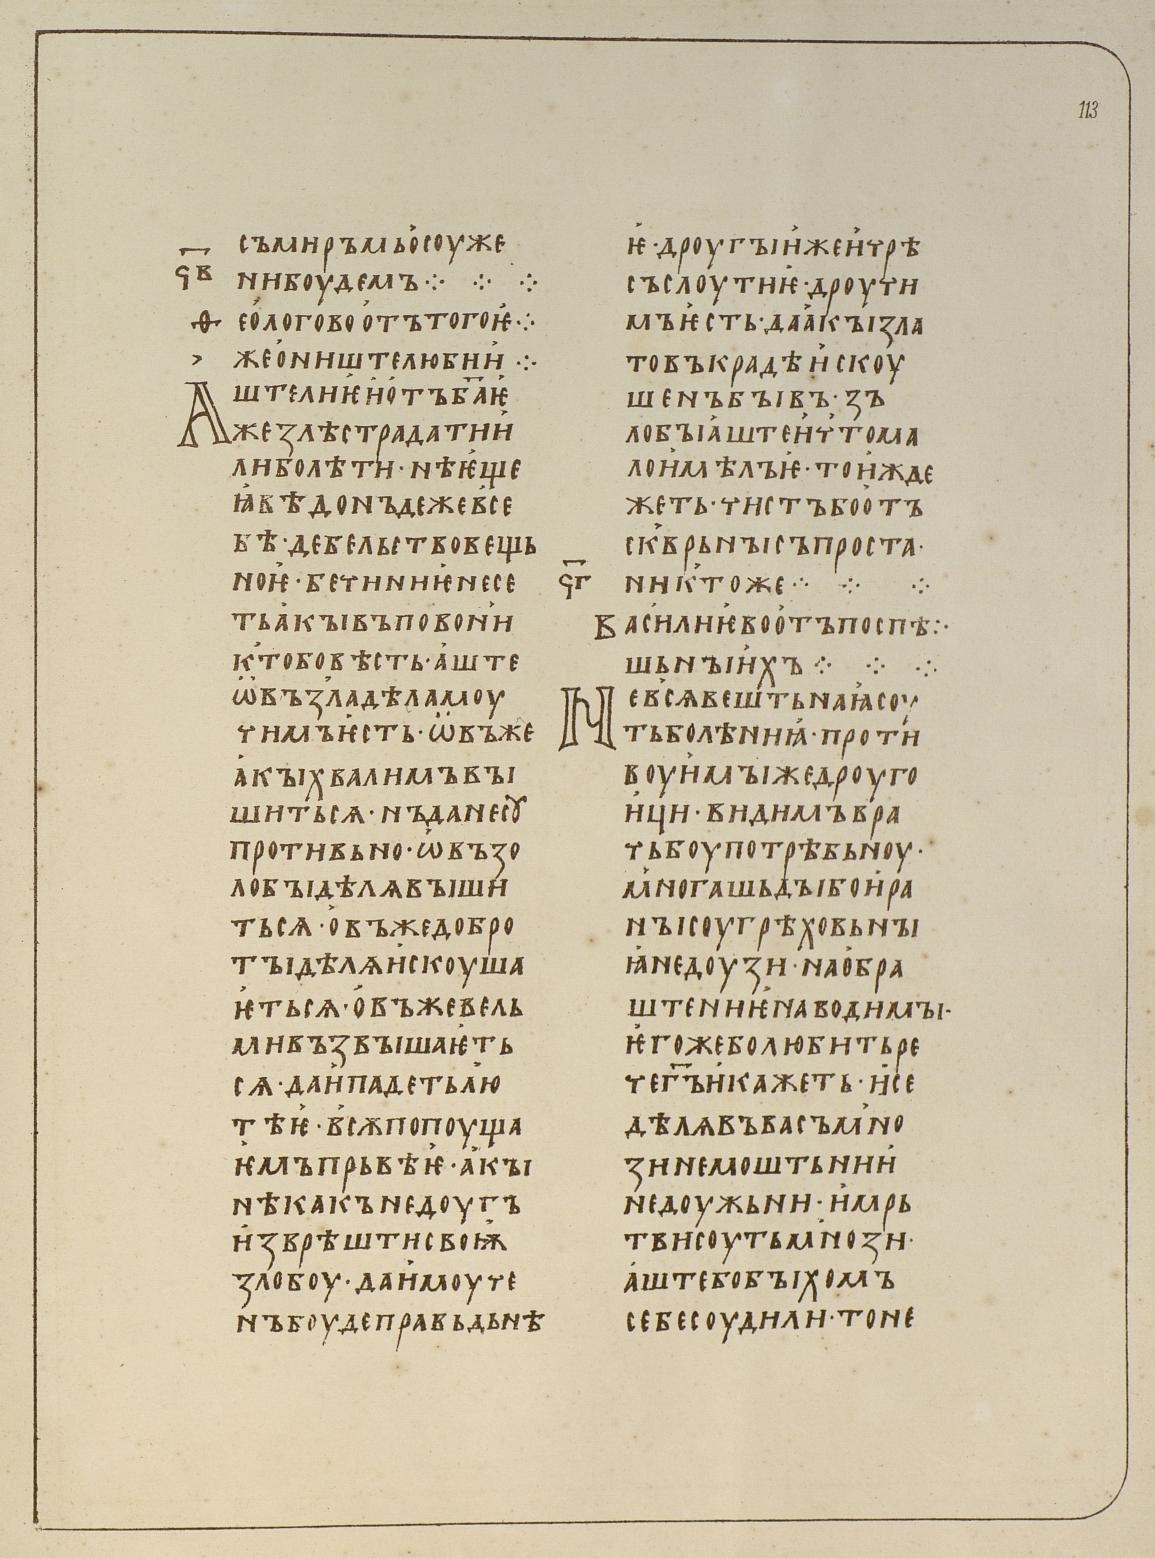 113
съмиръмь осоуже
с҃в ни боудемъ ⁘ ⁘ ⁘
Ѳеологово отъ того ѥ ⁘
> же о ништелюбии ⁘
Аште ли ѥ и отъ ба҃ ѥ
же зълѣ страдати и
ли болѣти · нѣ ѥще
ꙗвѣ доньдеже все
вѣ · дебельство вещь
ноѥ · бечиниѥ несе
ть акы въ повони
кто бо вѣсть · аште
ѡвъ зла дѣла моу
чимъ ѥсть · ѡвъ же
акы хвалимъ вы
шиться · нъ да не соу
противьно · ѡвъ зо
лобы дѣлѧ выши
тьсѧ · овъ же добро
ты дѣлѧ искоуша
ѥтьсѧ · овъ же вель
ми възвышаѥть
сѧ · да и падеть лю
тѣѥ · всѫ попоуща
ѥмъ прьвѣѥ · акы
нѣкакъ недоугъ
изврѣшти своѭ
злобоу · да имоуче
нъ боуде правьдьнѣ
ѥ · дроугыи же и чрѣ
съ слоутиѥ · дроучи
мъ ѥсть · да акы зла
то въкрадѣ искоу
шенъ бывъ · зъ
лобы аште и чьто ма
ло имѣлъ ѥ · то иждe
жеть · чистъ бо отъ
сквьрны съпроста ·
с҃г никтоже ⁘ ⁘ ⁘
Василиѥво отъ поспѣ ⁘
шьныихъ ⁘ ⁘ ⁘
Не всѧ вешть наꙗ соу
ть болѣниꙗ · проти
воу имы же дроуго
ици · видимъ вра
чьбоу потрѣбьноу ·
мъногашьды бо и ра
ны соу грѣховьны
ꙗ недоузи · на обра
штениѥ наводимы ·
ѥгоже бо любить ре
че г҃ь и кажеть · и се
дѣлѧ въ васъ мно
зи немоштьнии
недоужьни · и мрь
тви соуть мнози ·
аште бо быхомъ
себе соудили · то не